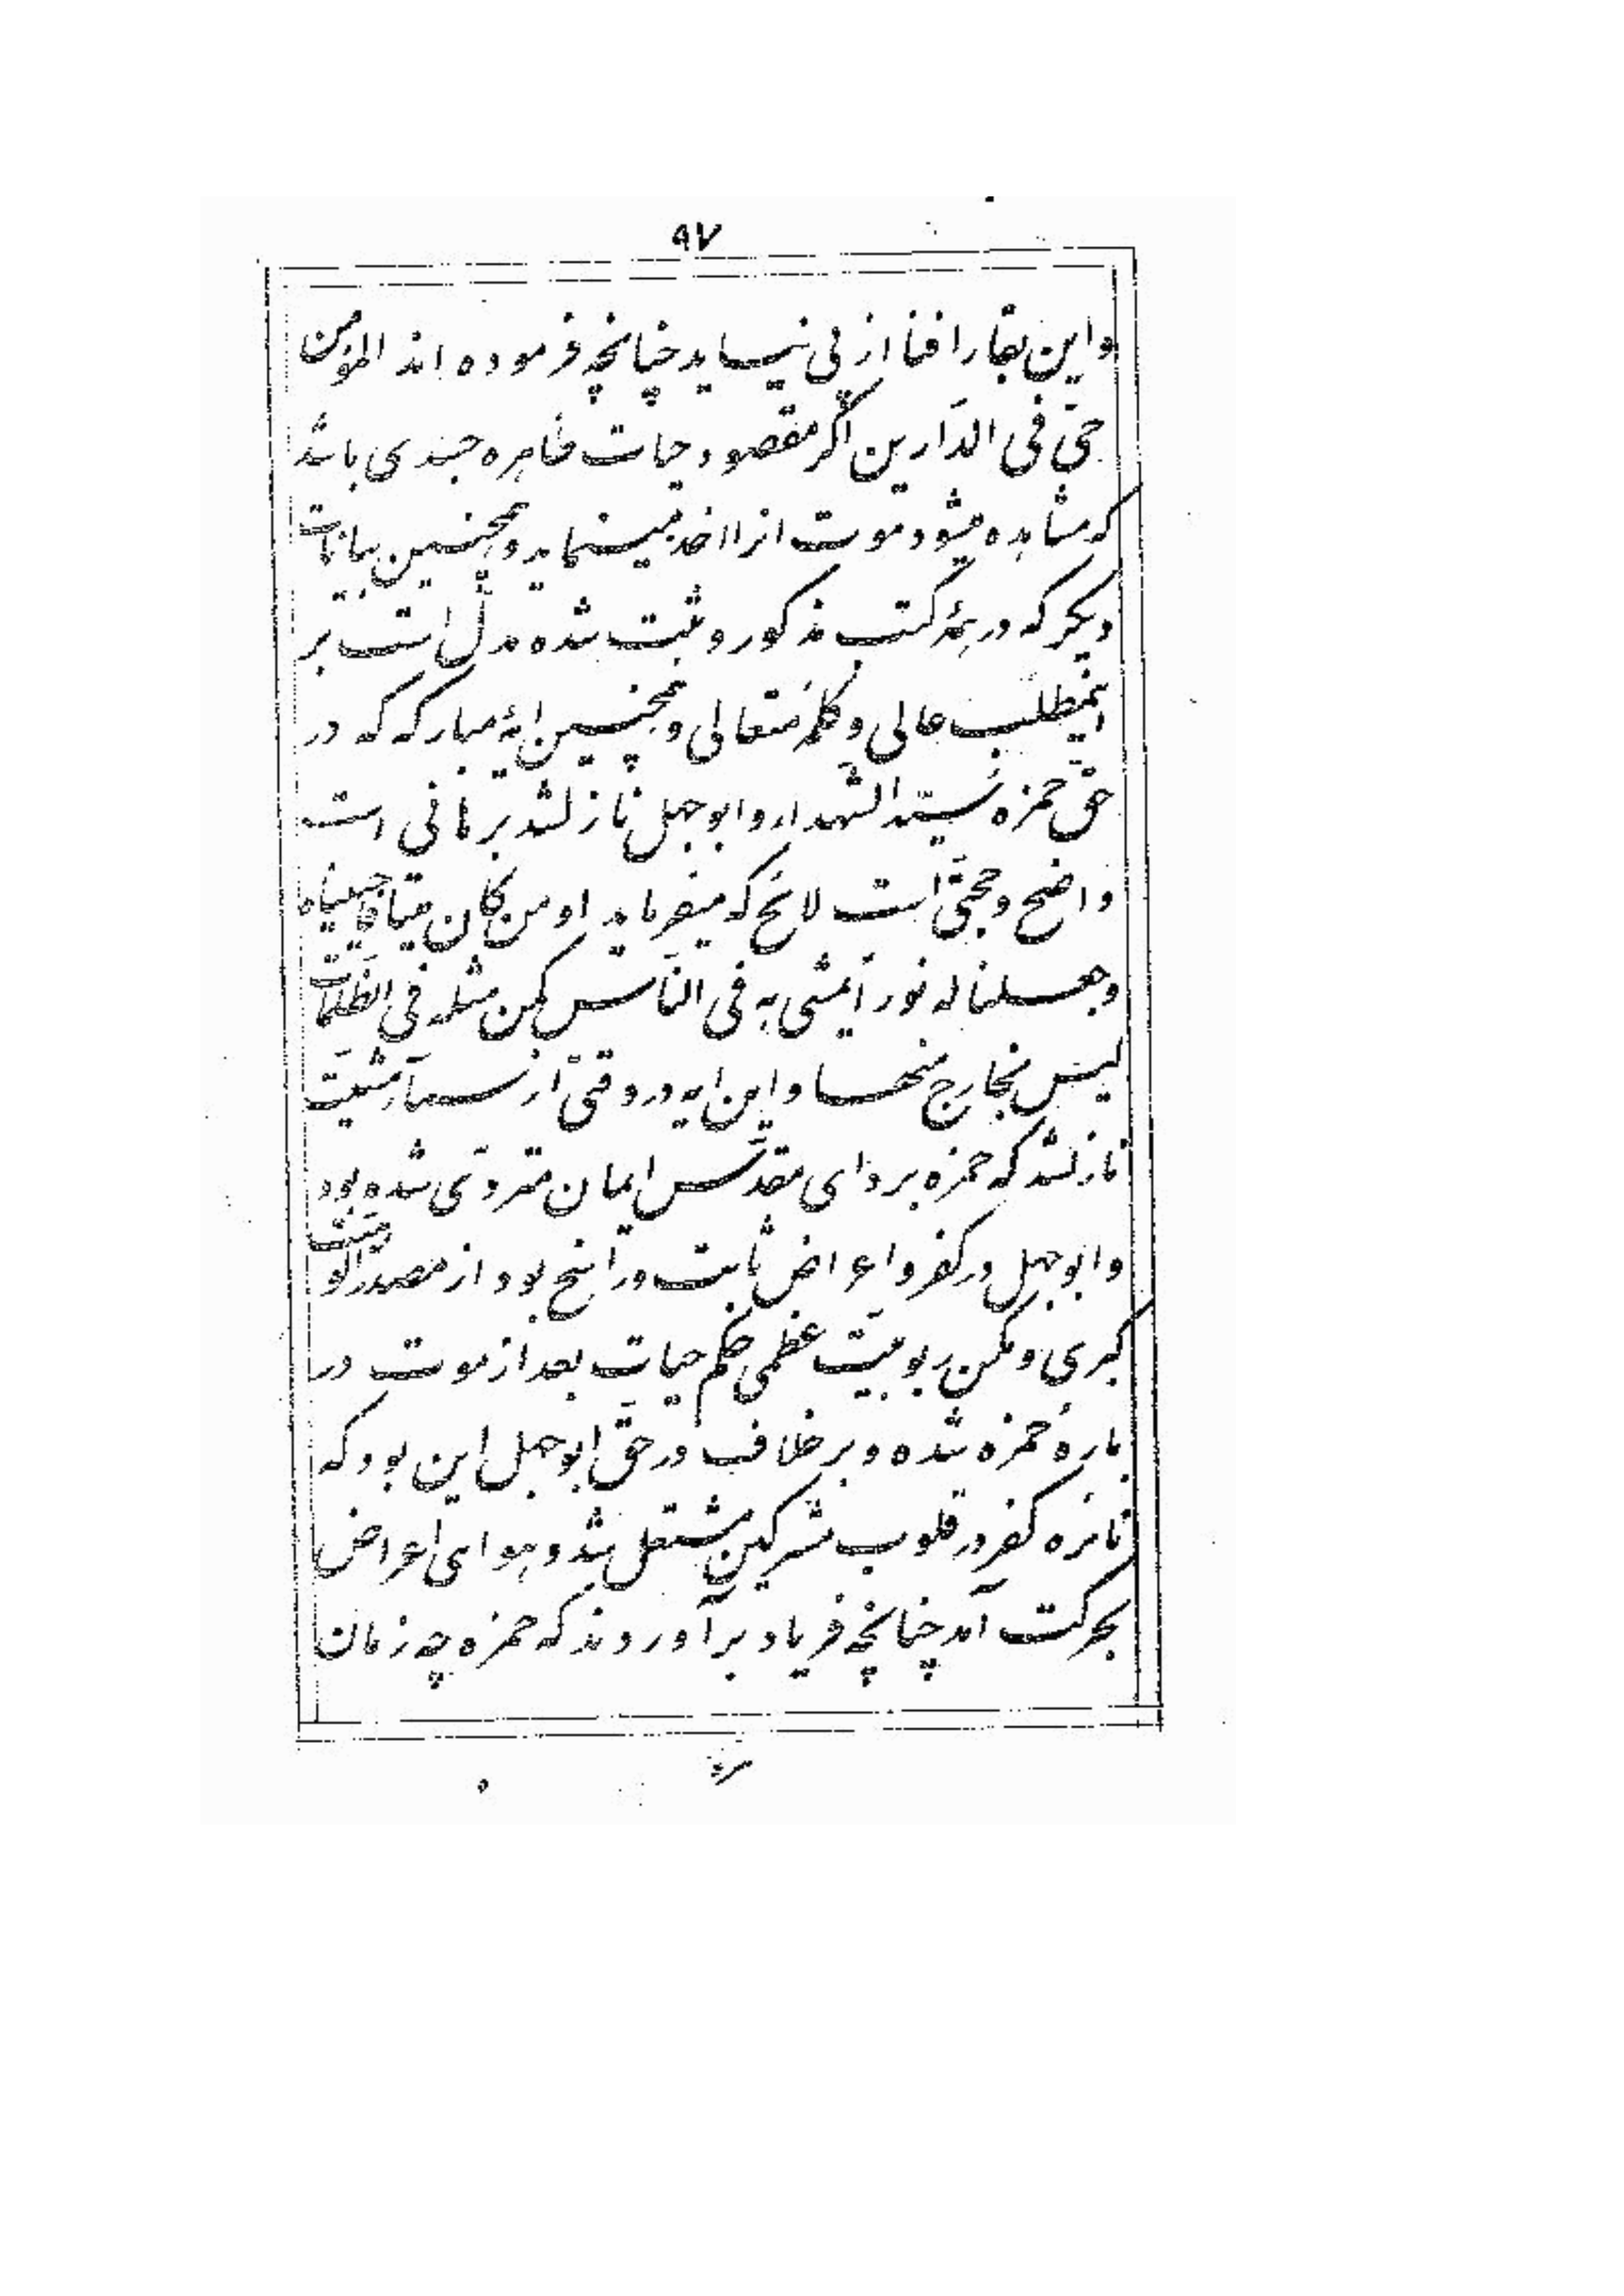 ٩٧
و این بقا را فنا از پی نیاید چنانچه فرموده اند المؤمن
حیّ فی الدّارین اگر مقصود حیات ظاهره جسدی باشد
که مشاهده میشود موت انرا اخذ مینماید و همچنین بیانات
دیگر که در همهٔ کتب مذکور و ثبت شده مدلّ است بر
اینمطلب عالی و کلمهٔ متعالی و همچنین ایهٔ مبارکه که در
حقّ حمزه سیّد الشّهداء و ابوجهل نازلشد برهانی است
واضح و حجّتی است لائح که میفرماید او من کان میتا فاحییناه
و جعلنا له نورا یمشی به فی النّاس کمن مثله فی الظّلمات
لیس بخارج منها و این ایه در وقتی از سماء مشیّت
نازلشد که حمزه بردای مقدّس ایمان متردّی شده بود
و ابوجهل در کفر و اعراض ثابت و راسخ بود از مصدر الوهیّت
کبری و مکمن ربوبیّت عظمی حکم حیات بعد از موت در
بارهٔ حمزه شده و بر خلاف در حقّ ابوجهل این بود که
نائره کفر در قلوب مشرکین مشتعل شد و هوای اعراض
بحرکت آمد چنانچه فریاد برآوردند که حمزه چه زمان